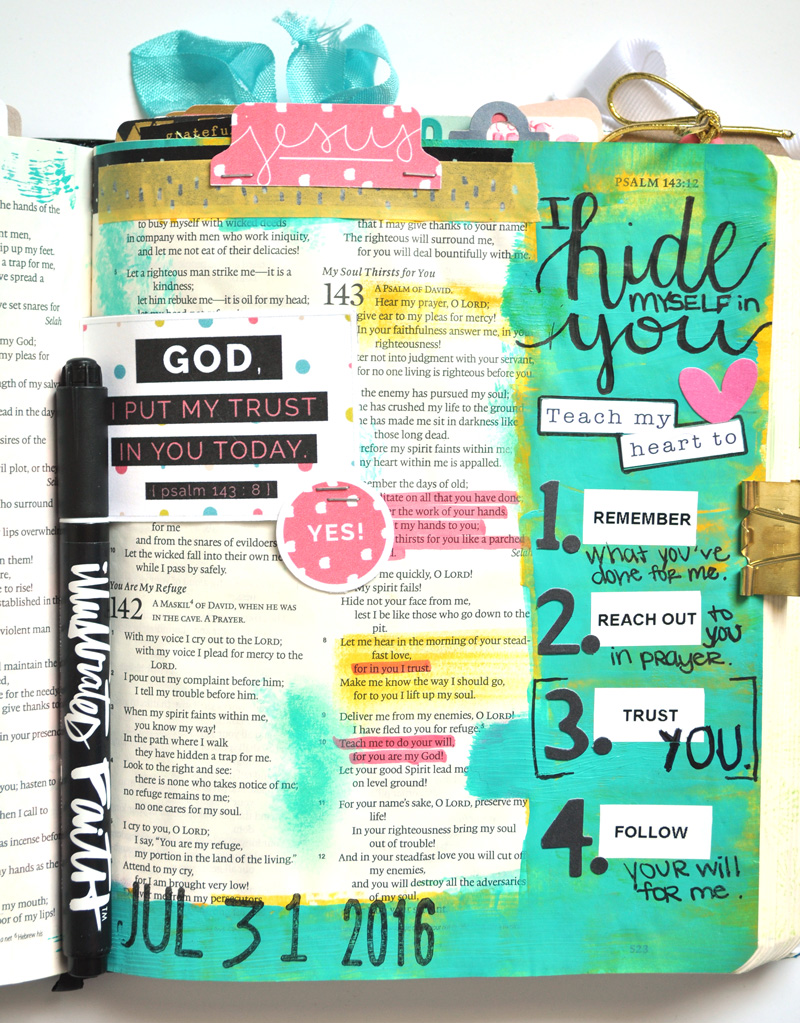 grateful
jesus
the hands of the
nt men,
ip up my feet.
a trap for me,
ve spread a
ve set snares for
Selah
my God;
my pleas for
ngth of my salv
ead in the day
sires of the
il plot, or the
who surround
lips overwhel
n them!
re,
e to rise!
stablished in th
violent man
l maintain the
e for the needy
give thanks to
in your presence
you; hasten to
hen I call to
as incense before
my hands as the
my mouth;
oor of my lips!
to busy myself with wicked deeds
in company with men who work iniquity,
and let me not eat of their delicacies!
5 Let a righteous man strike me—it is a
kindness;
let him rebuke me—it is oil for my head;
GOD,
I PUT MY TRUST
IN YOU TODAY.
[ psalm 143 : 8 ]
YES!
for me
and from the snares of evildoers
10 Let the wicked fall into their own ne
while I pass by safely.
You Are My Refuge
142 A MASKIL OF DAVID, WHEN HE WAS
IN THE CAVE. A PRAYER.
1 With my voice I cry out to the LORD;
with my voice I plead for mercy to the
LORD.
2 I pour out my complaint before him;
I tell my trouble before him.
3 When my spirit faints within me,
you know my way!
In the path where I walk
they have hidden a trap for me.
4 Look to the right and see:
there is none who takes notice of me;
no refuge remains to me;
no one cares for my soul.
5 I cry to you, O LORD;
I say, "You are my refuge,
my portion in the land of the living."
6 Attend to my cry,
for I am brought very low!
me from my persecutors
that I may give thanks to your name!
The righteous will surround me,
for you will deal bountifully with me.
My Soul Thirsts for You
143 A PSALM OF DAVID.
Hear my prayer, O LORD;
give ear to my pleas for mercy!
In your faithfulness answer me, in your
righteousness!
ter not into judgment with your servant,
for no one living is righteous before you.
the enemy has pursued my soul;
he has crushed my life to the ground
he has made me sit in darkness like
those long dead.
refore my spirit faints within me;
my heart within me is appalled.
member the days of old;
ditate on all that you have done
er the work of your hands
t my hands to you;
thirsts for you like a parched
Selah
me quickly, O LORD!
My spirit fails!
Hide not your face from me,
lest I be like those who go down to the
pit.
8 Let me hear in the morning of your stead-
fast love,
for in you I trust.
Make me know the way I should go,
for to you I lift up my soul.
9 Deliver me from my enemies, O LORD!
I have fled to you for refuge.
10 Teach me to do your will,
for you are my God!
Let your good Spirit lead me
on level ground!
11 For your name's sake, O LORD, preserve my
life!
In your righteousness bring my soul
out of trouble!
12 And in your steadfast love you will cut of
my enemies,
and you will destroy all the adversaries
of my soul,
PSALM 143:12
I hide
MYSELF in
you
Teach my
heart to
1. REMEMBER
what you've
done for me.
2. REACH OUT to
you
in prayer.
3. TRUST
YOU.
4. FOLLOW
your will
for me.
523
illustrated Faith™
JUL 31 2016